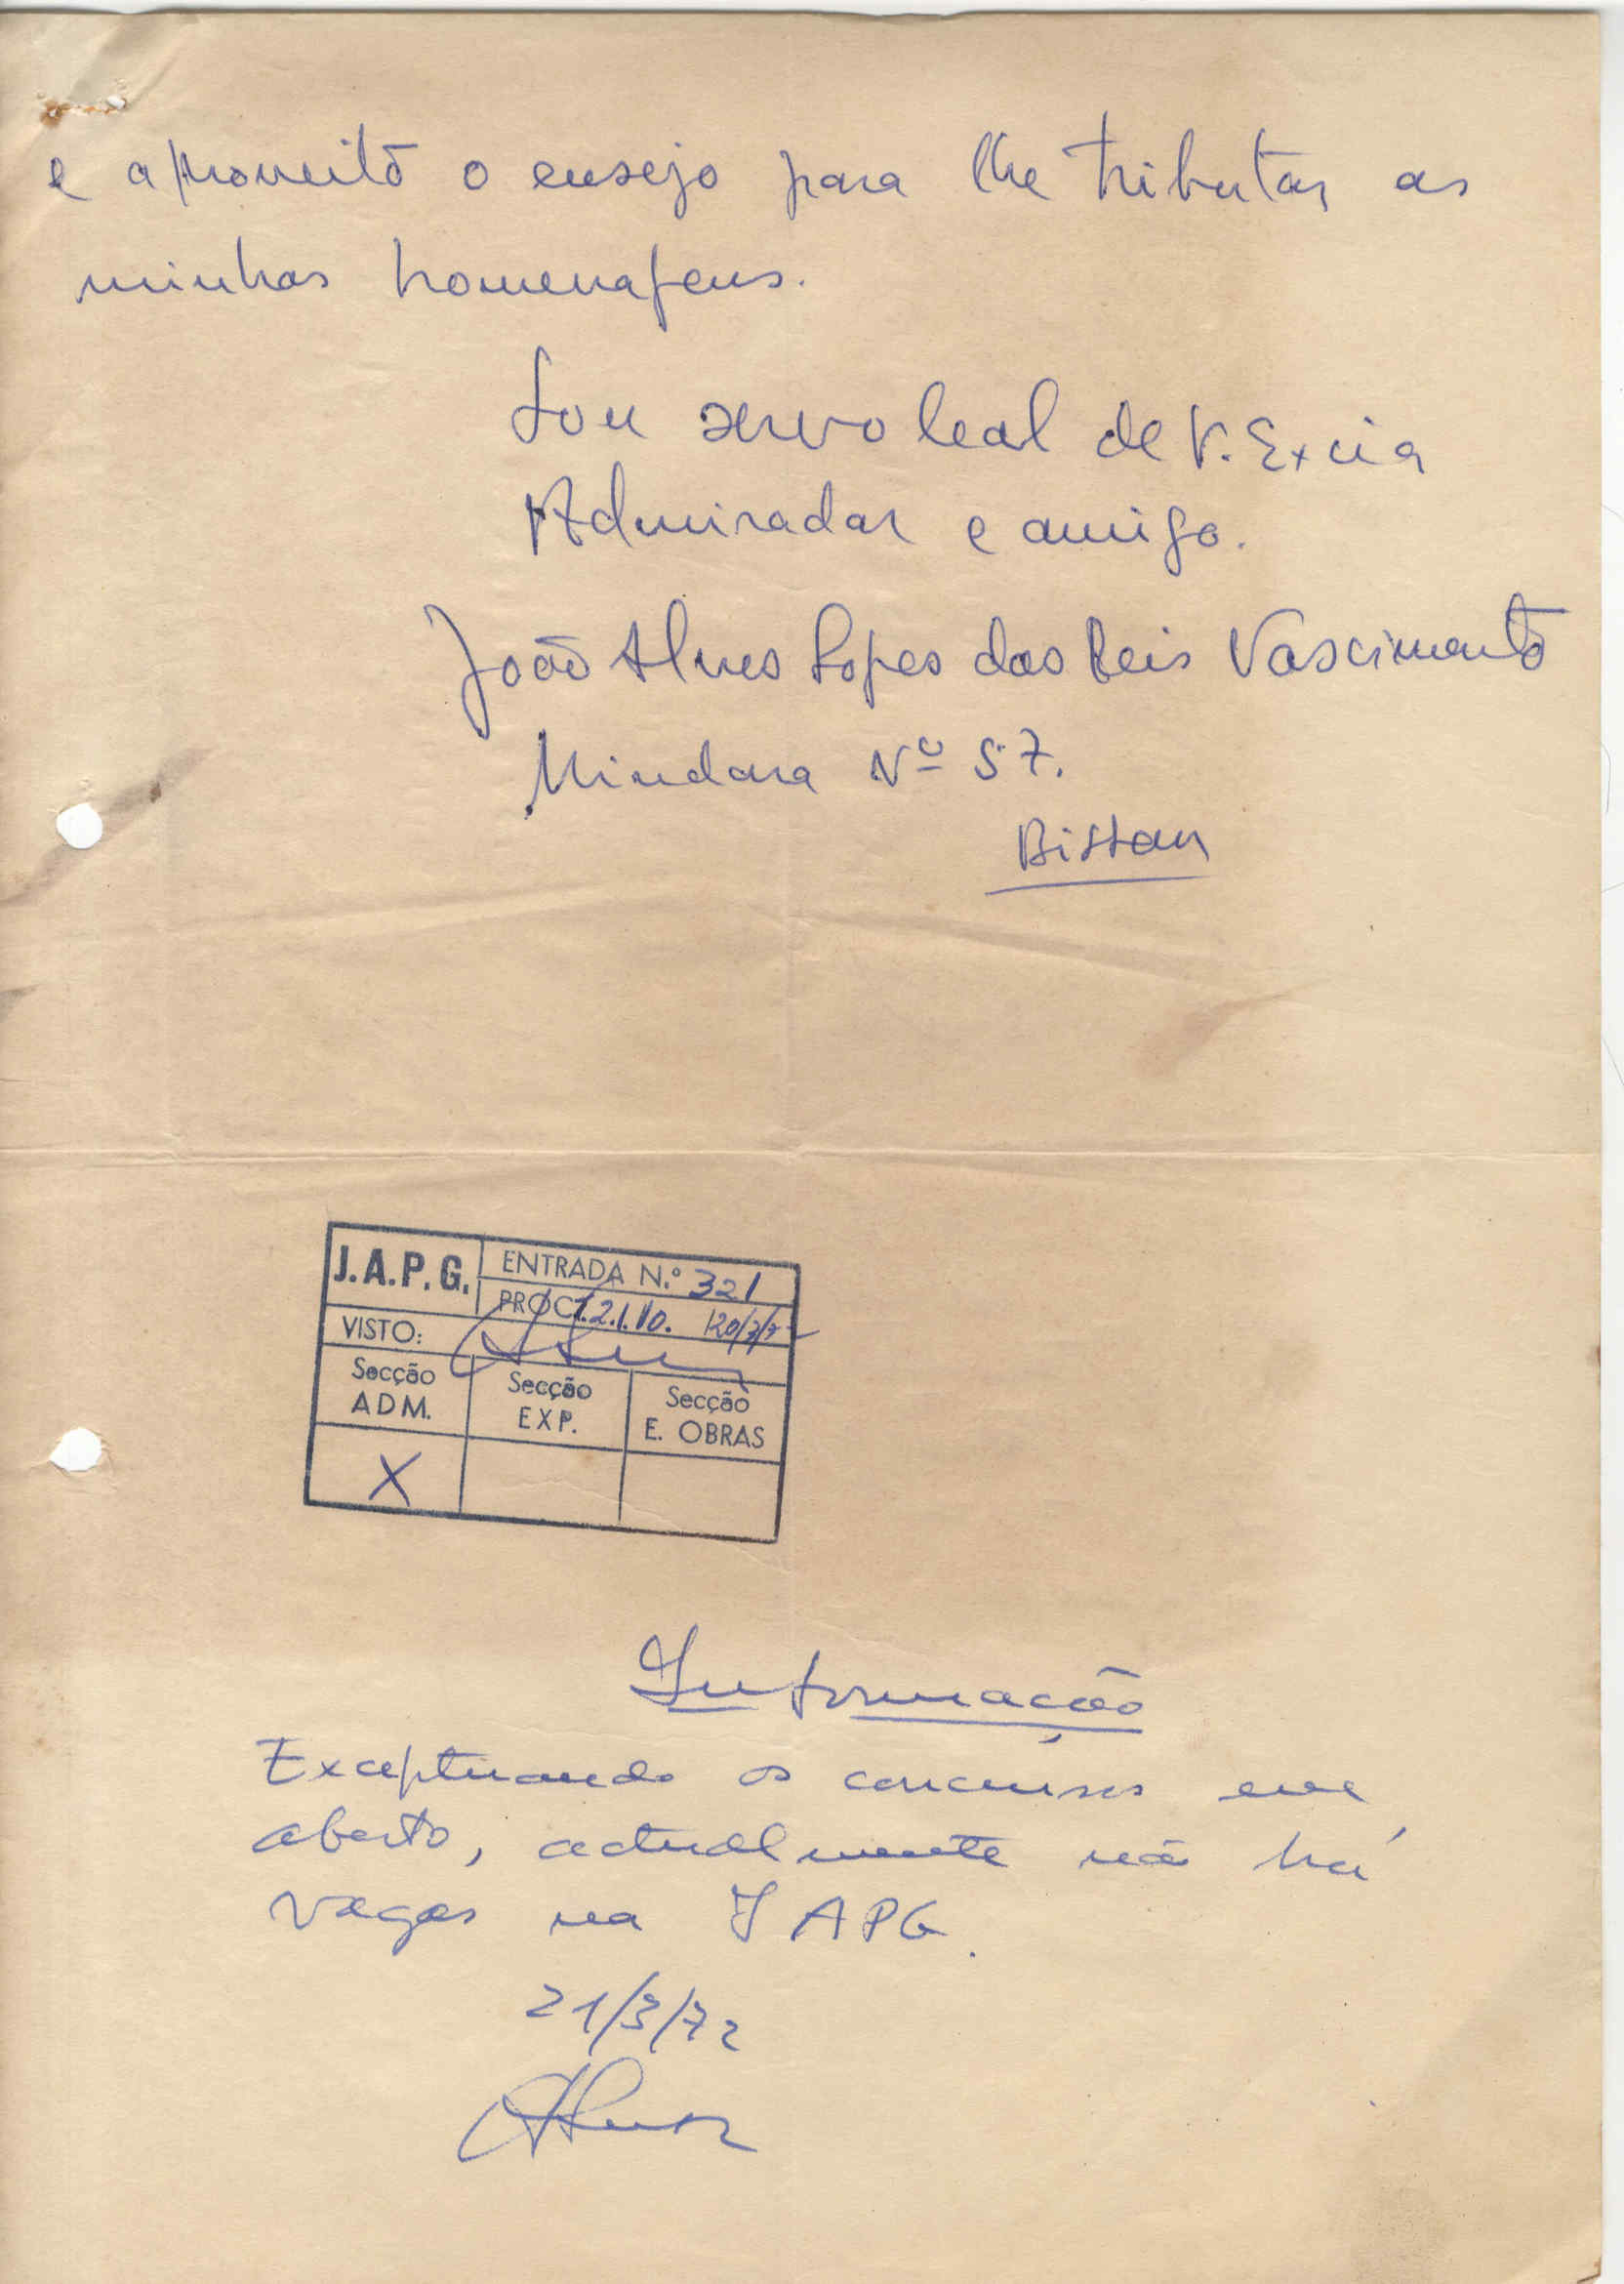 e aproveito o ensejo para lhe tributar as
minhas homenagens.
Sou servo leal de V. Excia
Admirador e amigo.
João Alves Lopes dos Reis Nascimento
Mindara Nº 57.
Bissau
J.A.P.G. ENTRADA N.º 321
PROC. 1.2.1.10. 20/3/72
VISTO:
Secção ADM. Secção EXP. Secção E. OBRAS
X
Informação
Exceptuando os concursos em
aberto, actualmente não há
vagas na JAPG.
21/3/72